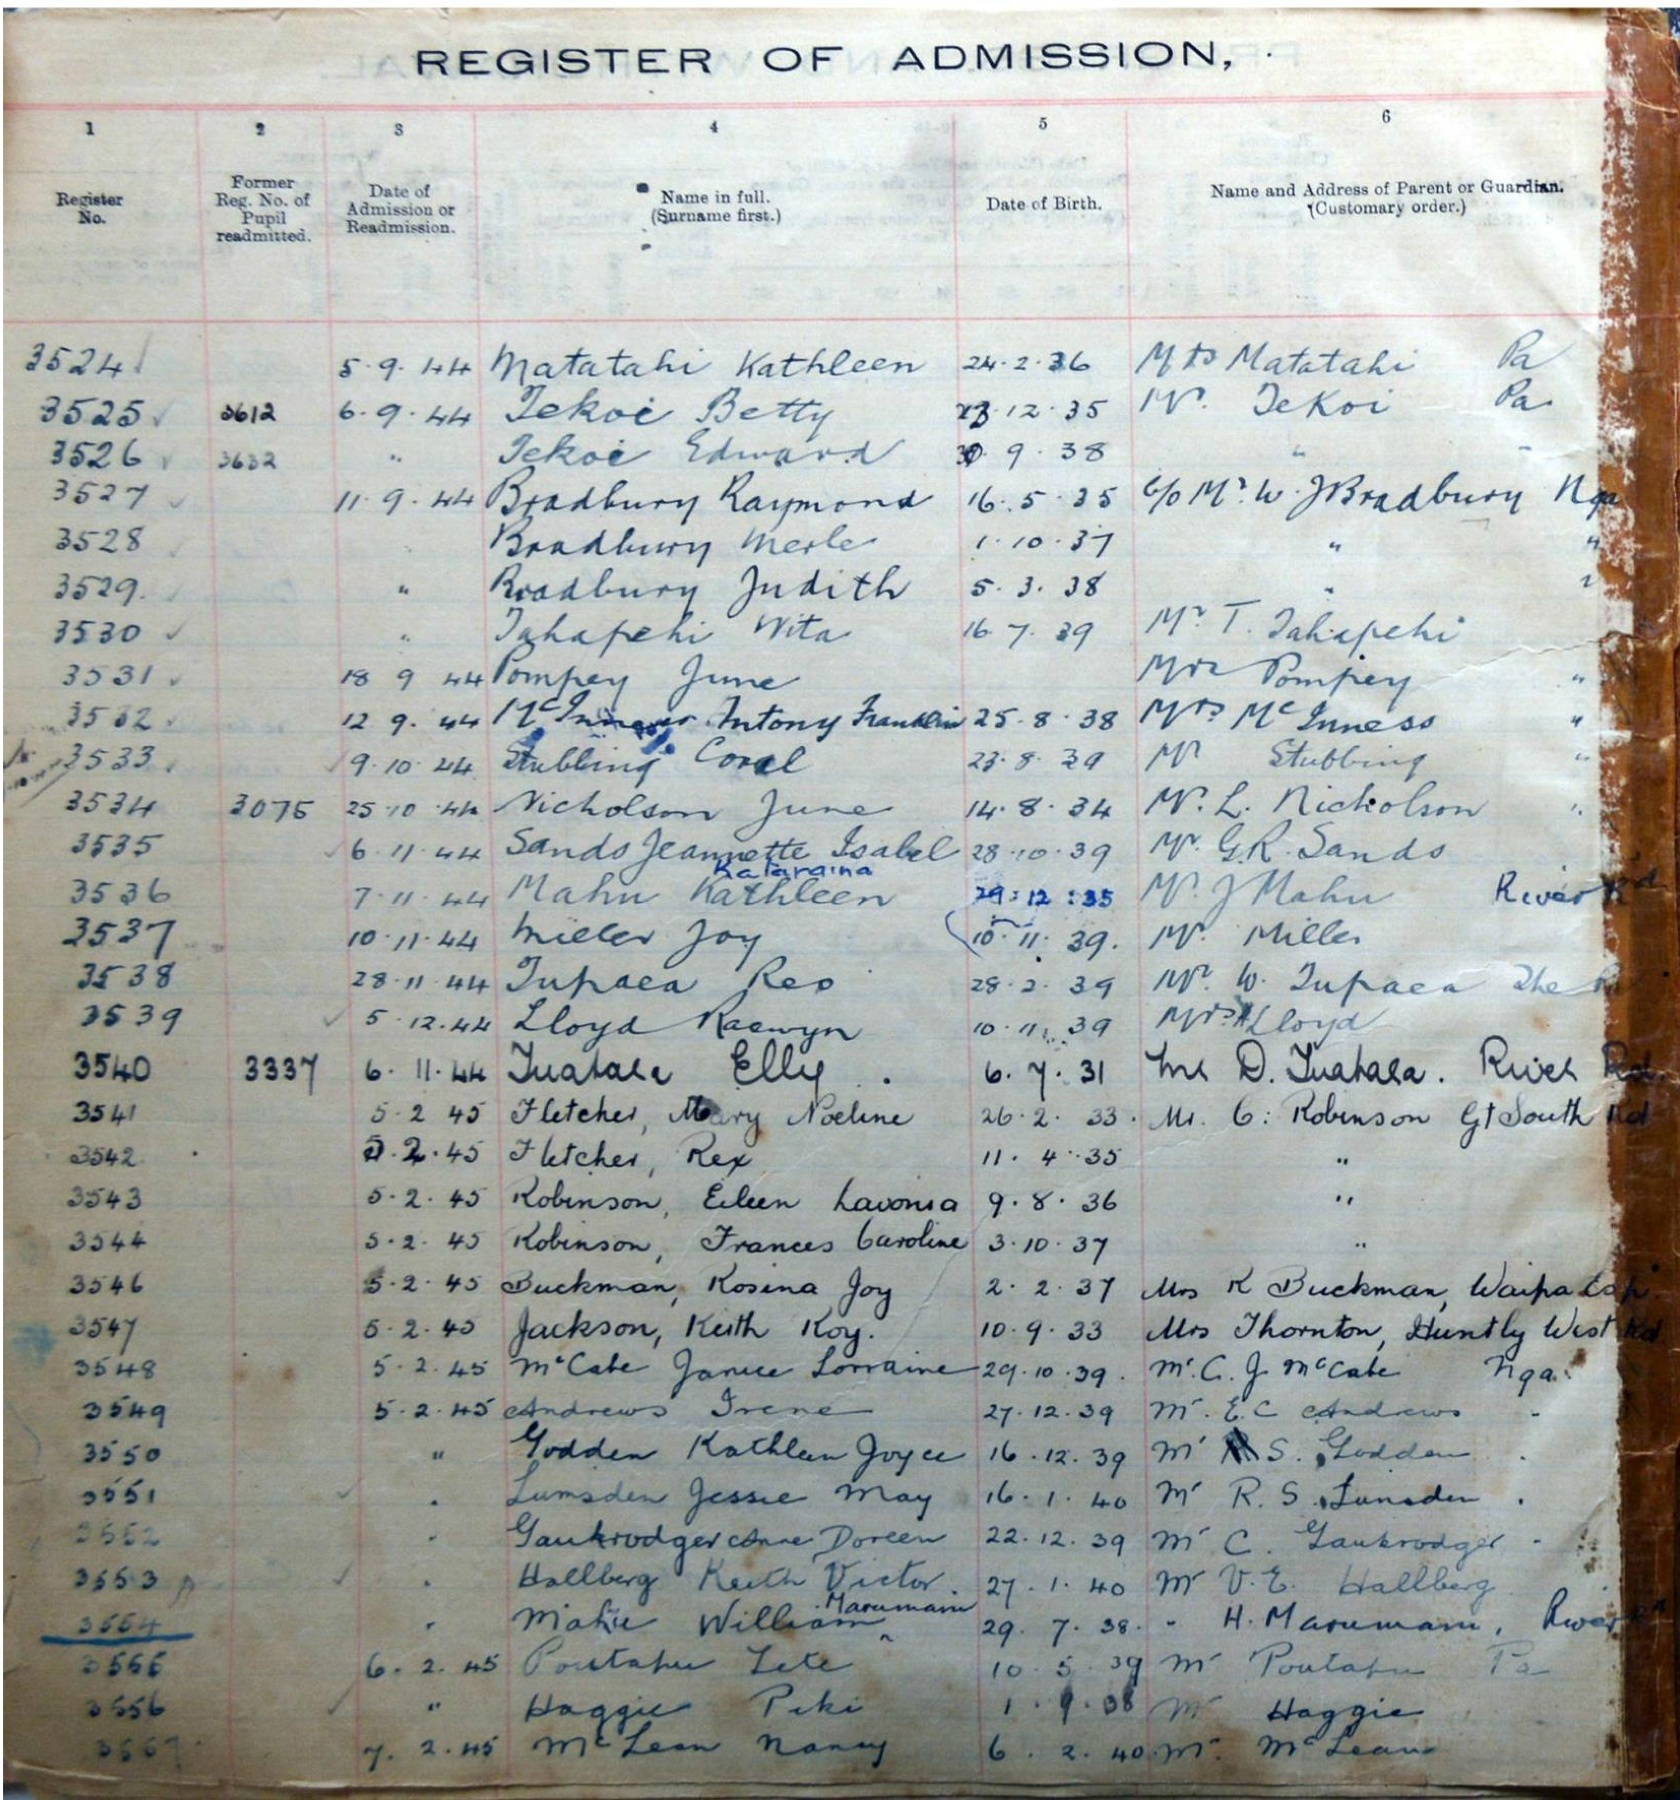 REGISTER OF ADMISSION,
1 2 3 4 5 6
Register No. Former Reg. No. of Pupil readmitted. Date of Admission or Readmission. Name in full. (Surname first.) Date of Birth. Name and Address of Parent or Guardian. (Customary order.)
3524 5.9.44 Matatahi Kathleen 24.2.36 Mrs Matatahi Pa
3525 3612 6.9.44 Tekoi Betty 12.35 Mr. TeKoi Pa
3526 3632 " Tekoi Edward 9.38 " "
3527 11.9.44 Bradbury Raymond 16.5.35 C/o Mr. W. J Bradbury Nga
3528 Bradbury Merle 1.10.37 " "
3529. " Bradbury Judith 5.3.38 " "
3530 " Tahapehi Wita 16.7.39 Mr. T. Tahapehi
3531 18 9 44 Pompey June Mrs Pompey "
3532 12 9.44 Antony Franklin 25.8.38 Mrs McInness "
3533 9.10.44 Stubbing Coral 23.8.39 Mr Stubbing "
3534 3075 25.10.44 Nicholson June 14.8.34 Mr. L. Nicholson "
3535 6.11.44 Sands Jeannette Isabel 28.10.39 Mr. G.R. Sands
Kataraina
3536 7.11.44 Mahu Kathleen 29:12:35 Mr. J Mahu River Rd
3537 10.11.44 Miller Joy 10.11.39. Mr. Miller
3538 28.11.44 Tupaea Reo 28.2.39 Mr. W. Tupaea The
3539 5.12.44 Lloyd Raewyn 10.11.39 Mrs Lloyd
3540 3337 6.11.44 Tuatala Elly . 6.7.31 D. Tuatala. River Rd
3541 5.2 45 Fletcher, Mary Noeline 26.2.33. Mr. C. Robinson Gt South Rd
3542 5.2.45 Fletcher, Rex 11.4.35 "
3543 5.2.45 Robinson, Eileen Lavonia 9.8.36 "
3544 5.2.45 Robinson, Frances Caroline 3.10.37 "
3546 5.2.45 Buckman, Rosina Joy 2.2.37 Mrs R Buckman, Waipa
3547 5.2.45 Jackson, Keith Roy. 10.9.33 Mrs Thornton, Huntly West Rd
3548 5.2.45 McCabe Janice Lorraine 29.10.39. Mr. C. J McCabe Nga.
3549 5.2.45 Andrews Irene 27.12.39 Mr. E. C Andrews "
3550 " Godden Kathleen Joyce 16.12.39 Mr S. Godden .
3551 " Lumsden Jessie May 16.1.40 Mr R. S. Lumsden .
3552 " Gaukrodger Anne Doreen 22.12.39 Mr C. Gaukrodger "
3553 " Hallberg Keith Victor. 27.1.40 Mr V.E. Hallberg
Marumaru
3554 " William 29.7.38. " H. Marumaru, River Rd
3555 6.2.45 Poutapu Tete 10.5.39 Mr Poutapu Pa
3556 " Haggie Peki 1.9.38 Mr Haggie
3557 7.2.45 McLean Nancy 6.2.40 Mr. McLean